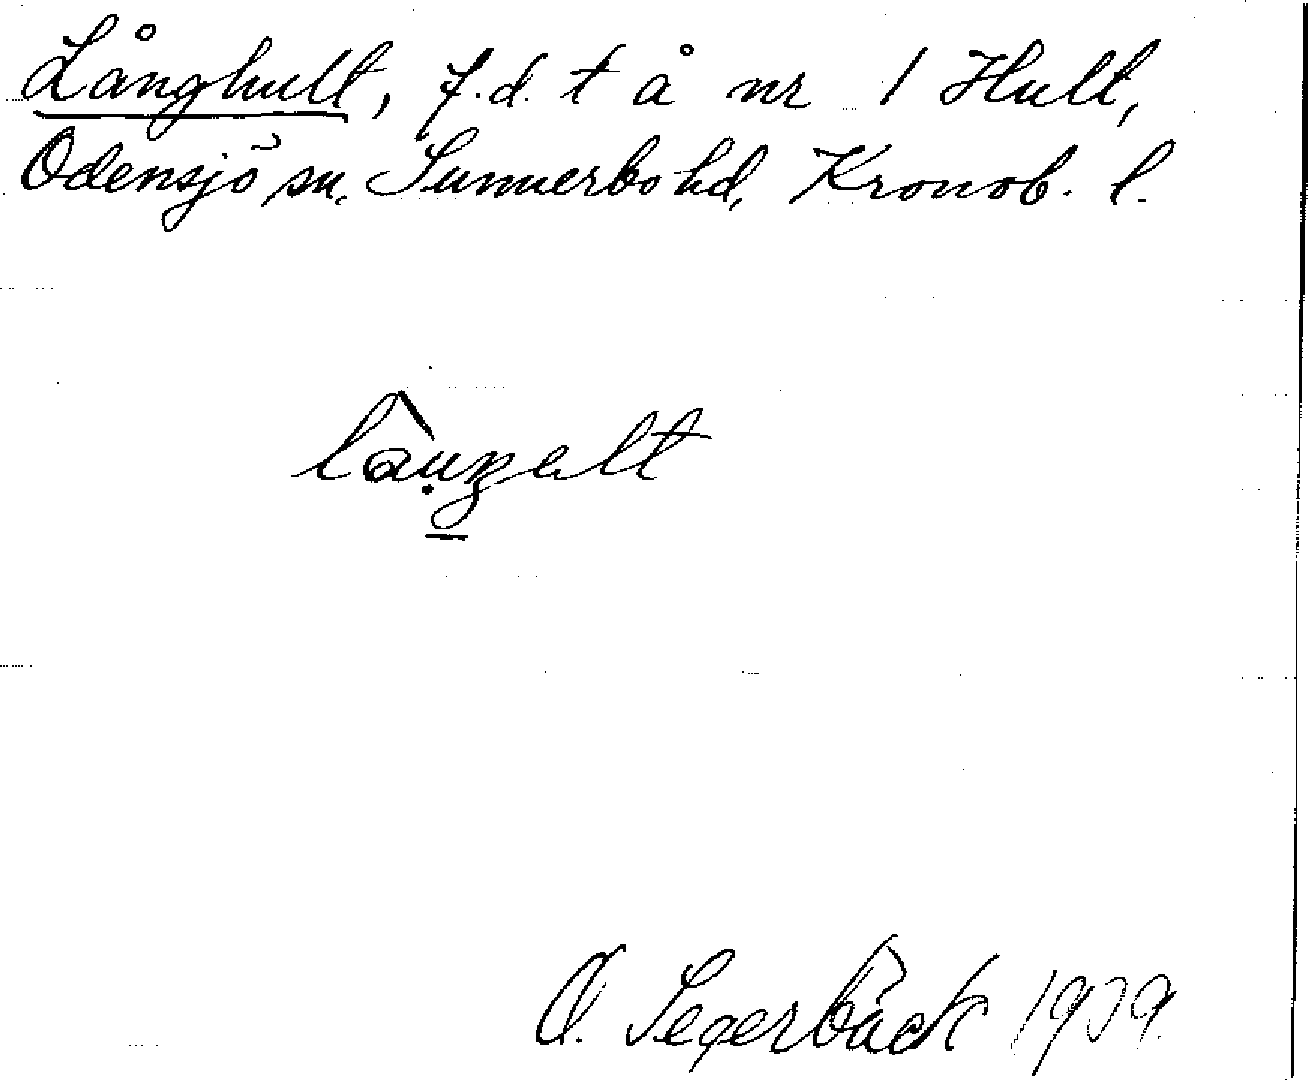 Långhult, f.d. t å nr 1 Hult,
Odensjö sn. Sunnerbo hd, Kronob. l.
O. Segerbäck 1939